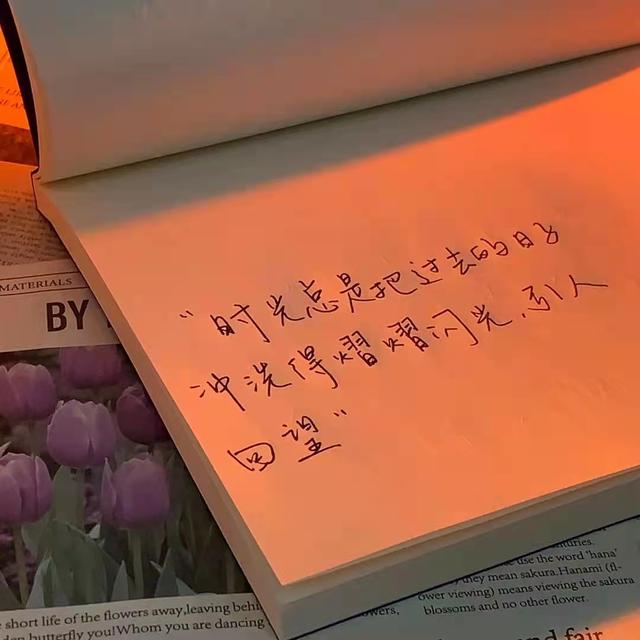 MATERIALS
BY
“时光总是把过去的日子
冲洗得熠熠闪光，引人
回望”
short life of the flowers away,leaving behi
butterfly you!Whom you are dancing
use the word 'hana'
they mean sakura.Hanami (fl-
ower viewing) means viewing the sakura
blossoms and no other flower.
fair